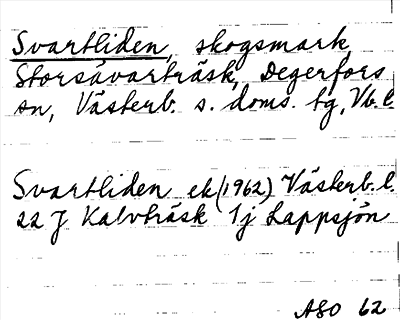 Svartliden, skogsmark,
Storsävarträsk, Degerfors
sn, Västerb. s. doms. tg, Vb. l.
Svartliden ek (1962) Västerb. l.
22 J Kalvträsk 1j Lappsjön
ASO 62